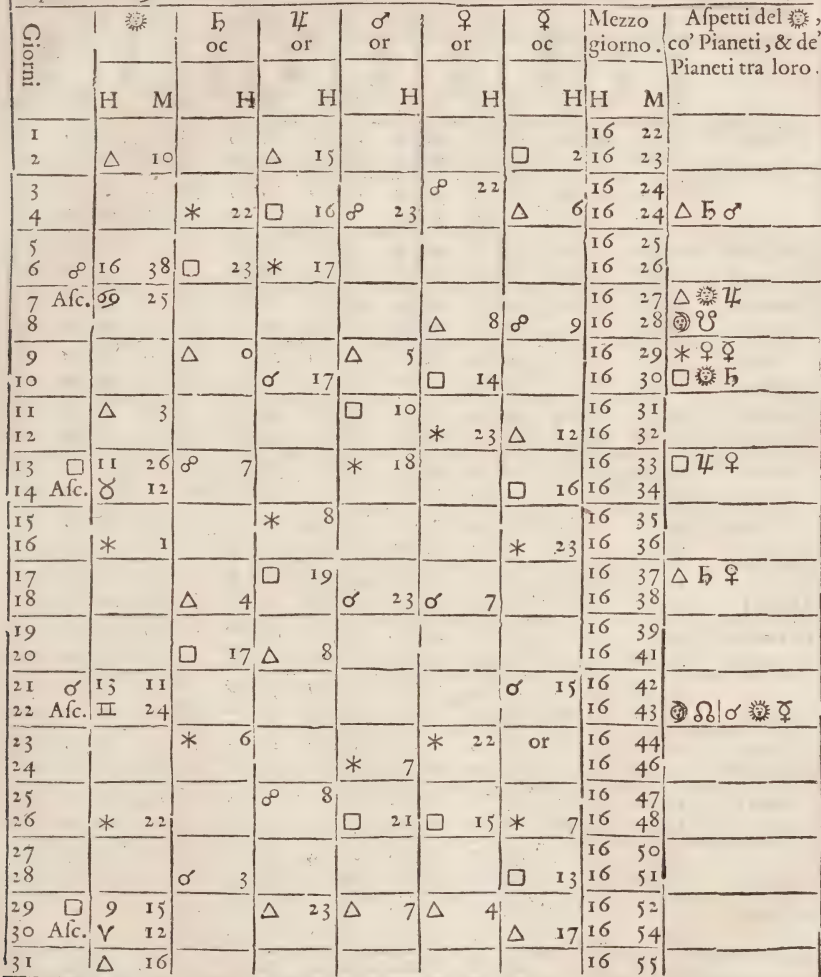 Giorni ☼ ♄ ♃ ♂ ♀ ☿ Mezzo Aſpetti del ☼,
oc or or or oc giorno. co' Pianeti, & de'
Pianeti tra loro.
H M H H H H H H M
1 16 22
2 △ 10 △ 15 □ 2 16 23
3 ☍ 22 16 24
4 ⚹ 22 □ 16 ☍ 23 △ 6 16 24 △ ♄ ♂
5 16 25
6 ☍ 16 38 □ 23 ⚹ 17 16 26
7 Aſc. ♋ 25 16 27 △ ☼ ♃
8 △ 8 ☍ 9 16 28 ☽ ☋
9 △ 0 △ 5 16 29 ⚹ ♀ ☿
10 ☌ 17 □ 14 16 30 □ ☼ ♄
11 △ 3 □ 10 16 31
12 ⚹ 23 △ 12 16 32
13 □ 11 26 ☍ 7 ⚹ 18 16 33 □ ♃ ♀
14 Aſc. ♉ 12 □ 16 16 34
15 ⚹ 8 16 35
16 ⚹ 1 ⚹ 23 16 36
17 □ 19 16 37 △ ♄ ♀
18 △ 4 ☌ 23 ☌ 7 16 38
19 16 39
20 □ 17 △ 8 16 41
21 ☌ 13 11 ☌ 15 16 42
22 Aſc. ♊ 24 16 43 ☽ ☊ | ☌ ☼ ☿
23 ⚹ 6 ⚹ 22 or 16 44
24 ⚹ 7 16 46
25 ☍ 8 16 47
26 ⚹ 22 □ 21 □ 15 ⚹ 7 16 48
27 16 50
28 ☌ 3 □ 13 16 51
29 □ 9 15 △ 23 △ 7 △ 4 16 52
30 Aſc. ♈ 12 △ 17 16 54
31 △ 16 16 55